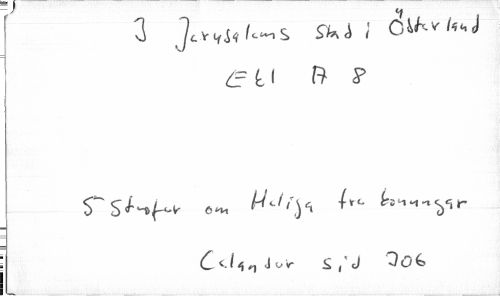 I Jerusalems stad i Österland
Etl A 8
5 Strofer om Heliga tre konungar
Celander sid 206